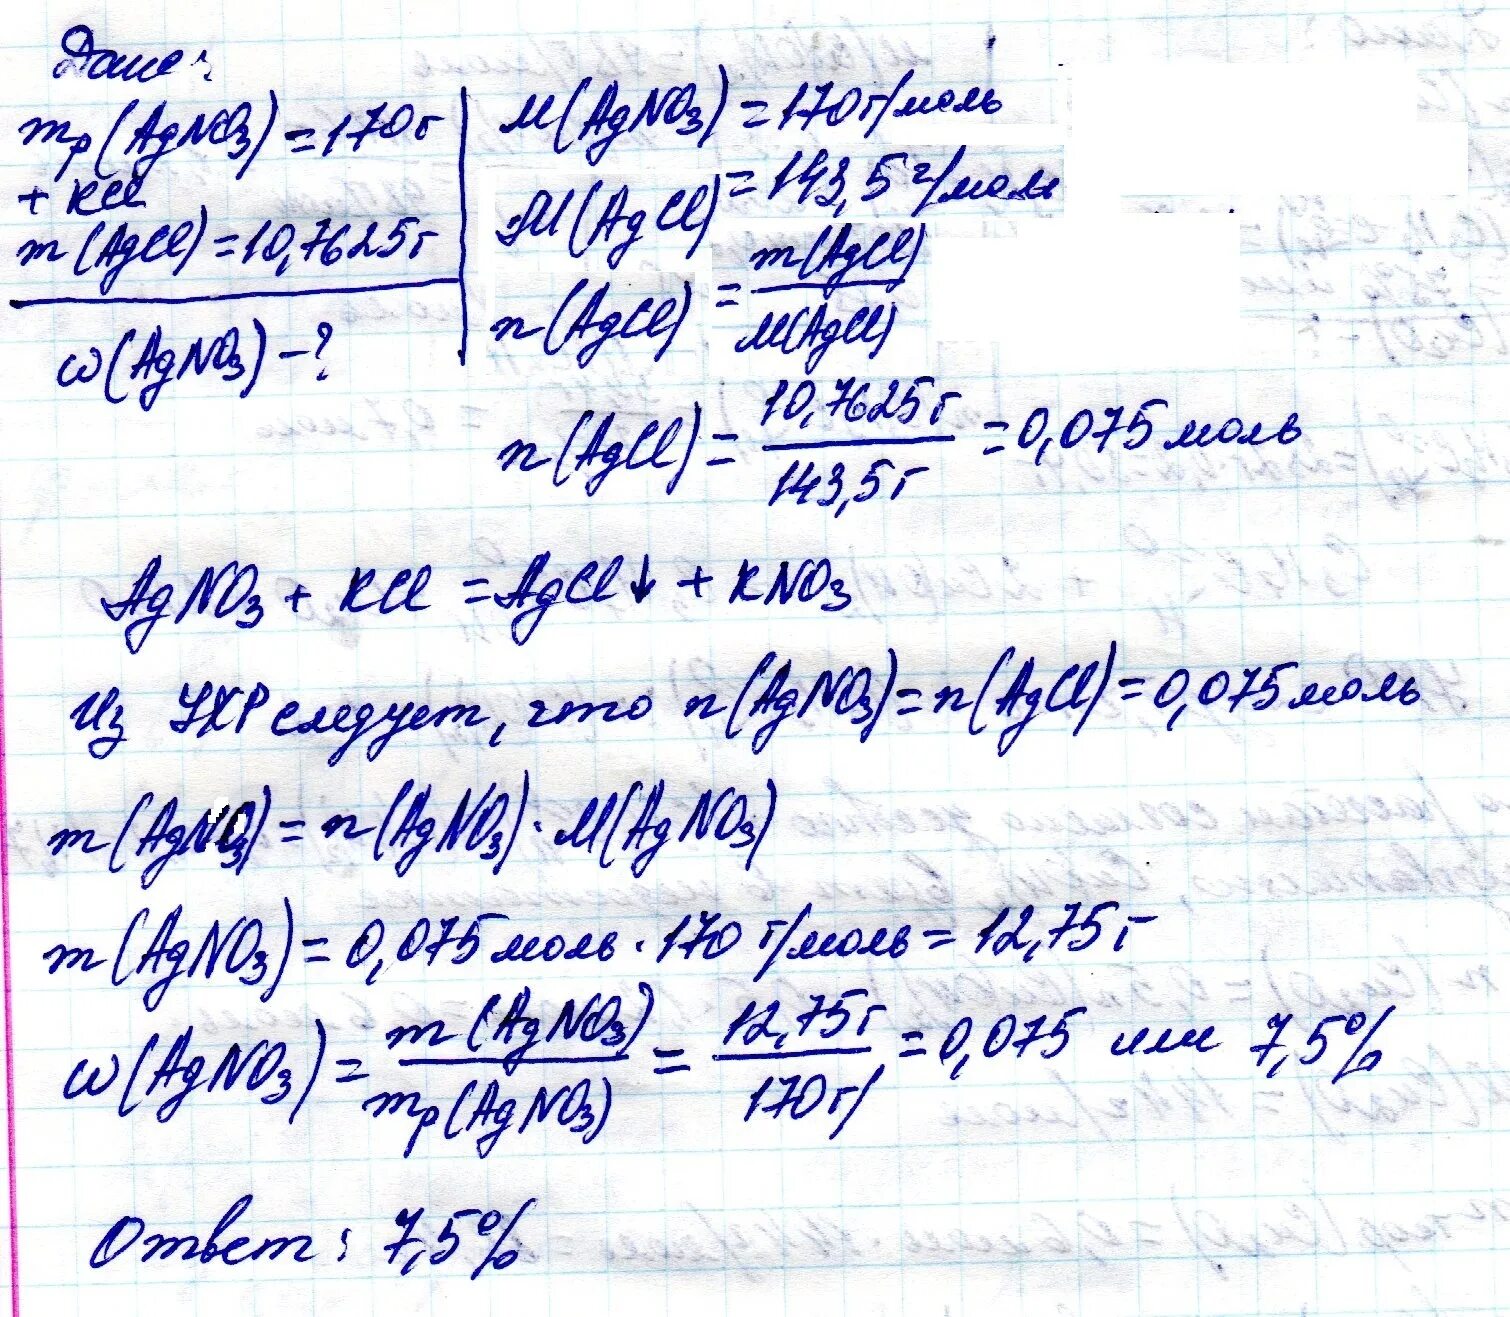 Дано:
mр(AgNO3) = 170г
+ KCl
m(AgCl) = 10,7625г
ω(AgNO3) – ?
M(AgNO3) = 170г/моль
M(AgCl) = 143,5 г/моль
n(AgCl) = m(AgCl) / M(AgCl)
n(AgCl) = 10,7625г / 143,5г = 0,075 моль
AgNO3 + KCl = AgCl↓ + KNO3
Из УХР следует, что n(AgNO3) = n(AgCl) = 0,075 моль
m(AgNO3) = n(AgNO3) · M(AgNO3)
m(AgNO3) = 0,075 моль · 170 г/моль = 12,75г
ω(AgNO3) = m(AgNO3) / mр(AgNO3) = 12,75г / 170г = 0,075 или 7,5%
Ответ: 7,5%